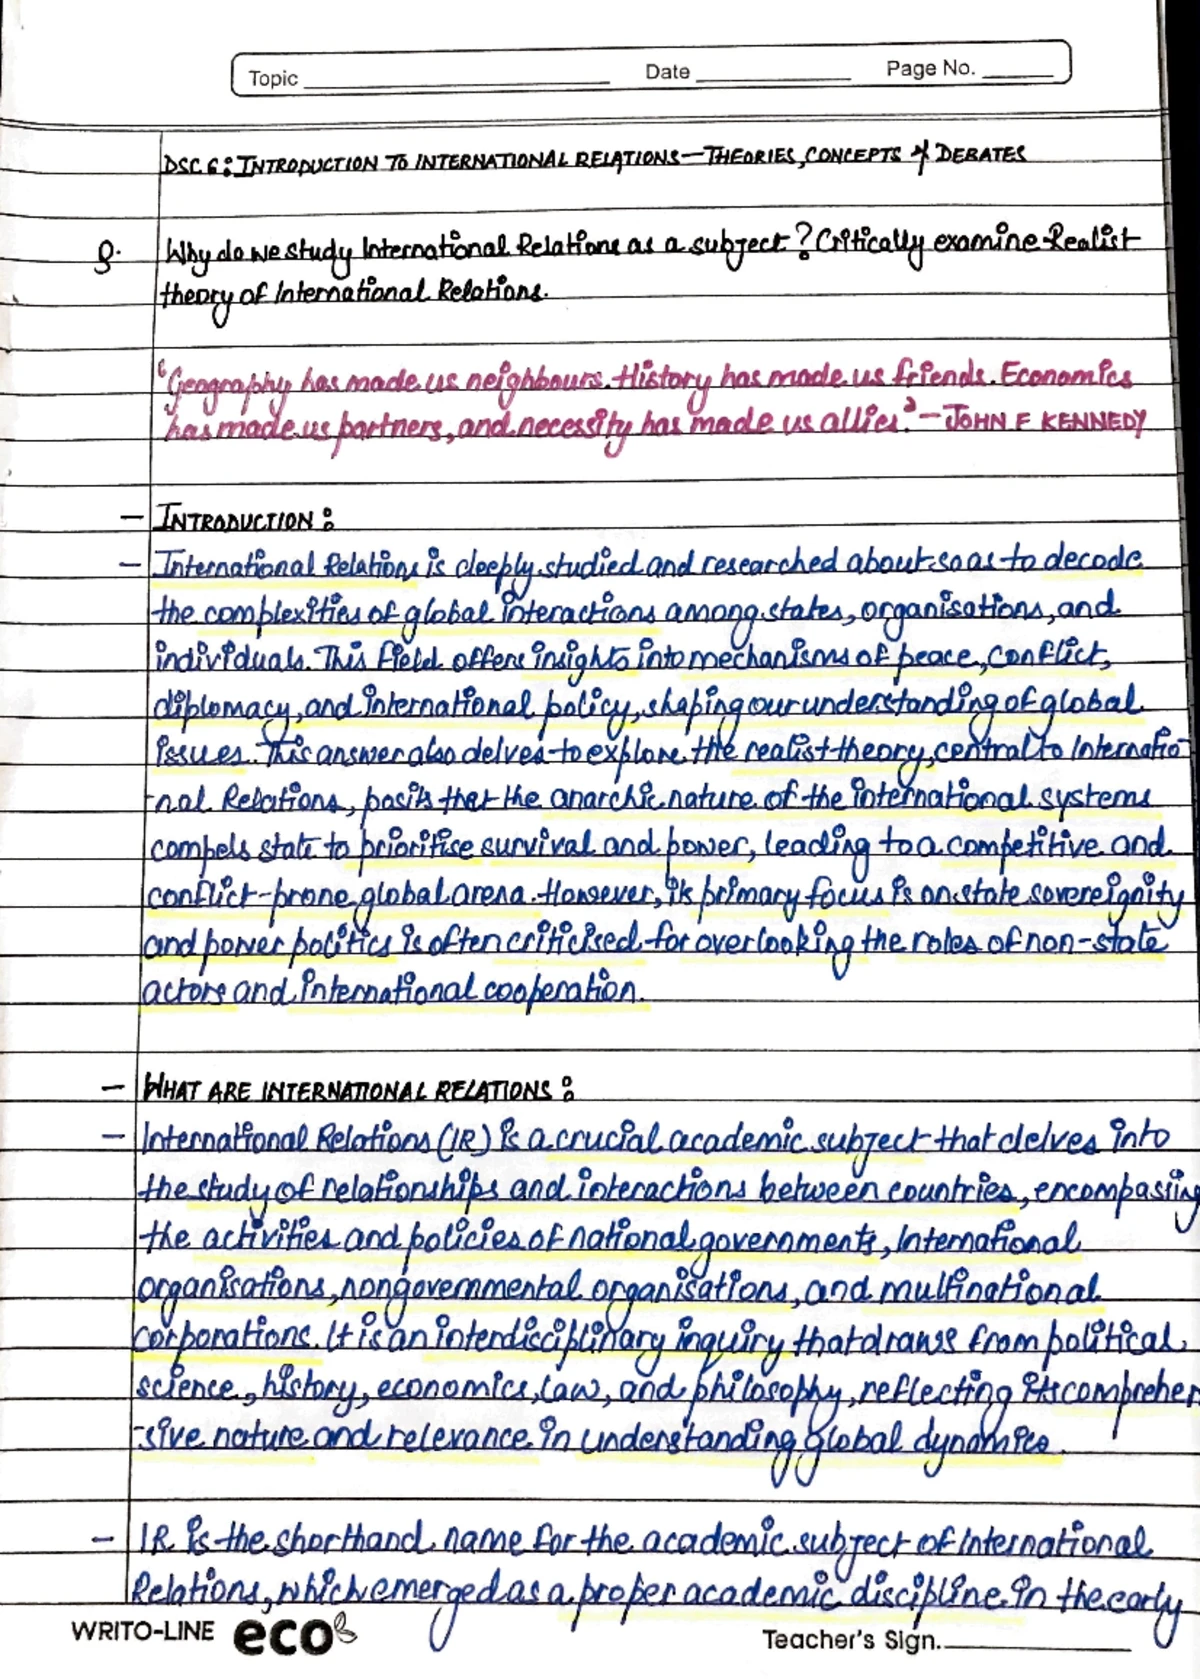 Topic Date Page No.
DSC 6: INTRODUCTION TO INTERNATIONAL RELATIONS—THEORIES, CONCEPTS & DEBATES
Q. Why do we study International Relations as a subject? Critically examine Realist
theory of International Relations.
'Geography has made us neighbours. History has made us friends. Economics
has made us partners, and necessity has made us allies.' — JOHN F KENNEDY
— INTRODUCTION:
— International Relations is deeply studied and researched about so as to decode
the complexities of global interactions among states, organisations, and
individuals. This field offers insights into mechanisms of peace, conflict,
diplomacy, and international policy, shaping our understanding of global
issues. This answer also delves to explore the realist theory, central to Internatio-
-nal Relations, posits that the anarchic nature of the international systems
compels state to prioritise survival and power, leading to a competitive and
conflict-prone global arena. However, its primary focus is on state sovereignity
and power politics is often criticised for overlooking the roles of non-state
actors and international cooperation.
— WHAT ARE INTERNATIONAL RELATIONS:
— International Relations (IR) is a crucial academic subject that delves into
the study of relationships and interactions between countries, encompasiing
the activities and policies of national governments, International
organisations, nongovernmental organisations, and multinational
corporations. It is an interdisciplinary inquiry that draws from political
science, history, economics, law, and philosophy, reflecting its comprehen
-sive nature and relevance in understanding global dynamics.
— IR is the shorthand name for the academic subject of International
Relations, which emerged as a proper academic discipline in the early
WRITO-LINE eco Teacher's Sign.